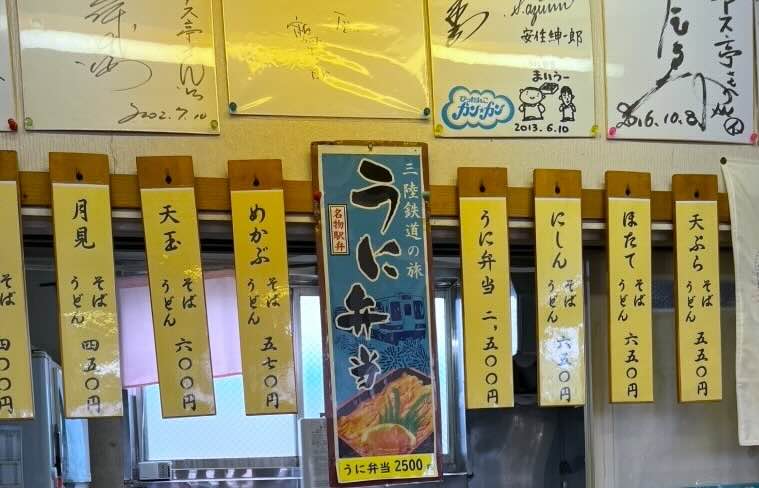 2002.7.10
安住紳一郎
まいうー
ぴったんこ
カン・カン
2013.6.10
2016.10.8
天ぷら そば うどん 五五〇円
ほたて そば うどん 六五〇円
にしん そば うどん 六五〇円
うに弁当 二、五〇〇円
三陸鉄道の旅
うに弁当
名物駅弁
うに弁当 2500円
めかぶ そば うどん 五七〇円
天玉 そば うどん 六〇〇円
月見 そば うどん 四五〇円
そば うどん 四〇〇円